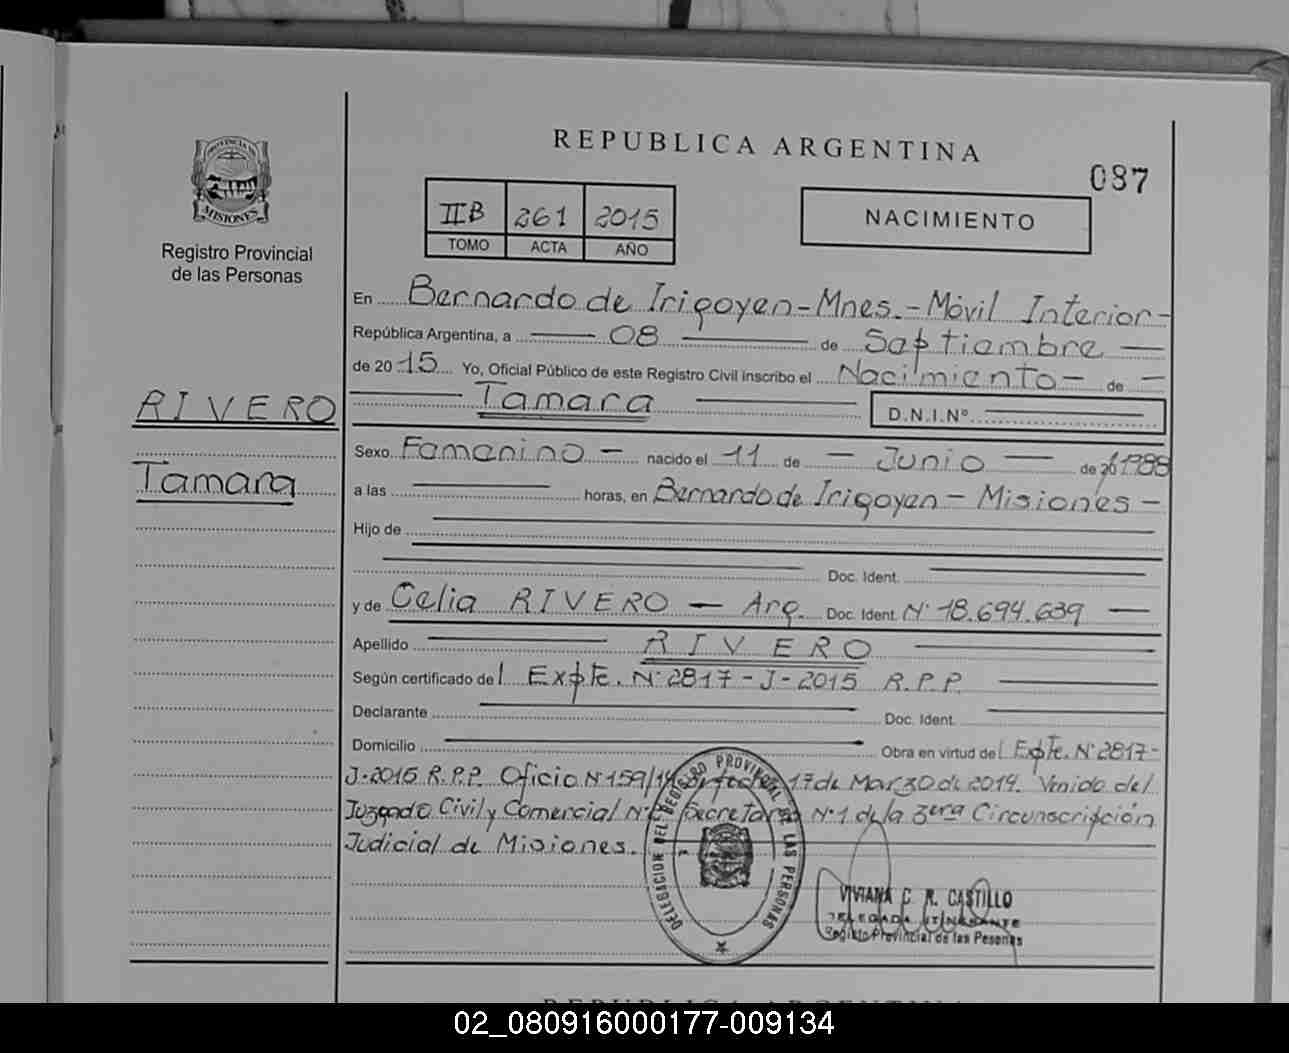 REPUBLICA ARGENTINA
087
PROVINCIA DE MISIONES
Registro Provincial
de las Personas
IIB 261 2015
TOMO ACTA AÑO
NACIMIENTO
En Bernardo de Irigoyen - Mnes. - Móvil Interior -
República Argentina, a 08 de Septiembre
de 20 15 Yo, Oficial Público de este Registro Civil inscribo el Nacimiento - de -
RIVERO
Tamara D.N.I.Nº
Sexo Femenino - nacido el 11 de - Junio - de 1988
Tamara
a las horas, en Bernardo de Irigoyen - Misiones -
Hijo de
Doc. Ident.
y de Celia RIVERO - Arg. Doc. Ident. N° 18.694.639
Apellido RIVERO
Según certificado del Expte. N° 2817 - J - 2015 R.P.P.
Declarante Doc. Ident.
Domicilio Obra en virtud del Expte. N° 2817 -
J-2015 R.P.P. Oficio N° 159/14 de fecha 17 de Marzo de 2014. Venido del
Juzgado Civil y Comercial Secretaria N° 1 de la 3era Circunscripción
Judicial de Misiones.
DELEGACION DEL REGISTRO PROVINCIAL DE LAS PERSONAS
VIVIANA C. R. CASTILLO
DELEGADA ITINERANTE
Registro Provincial de las Pesonas
REPUBLICA ARGENTINA
02_080916000177-009134